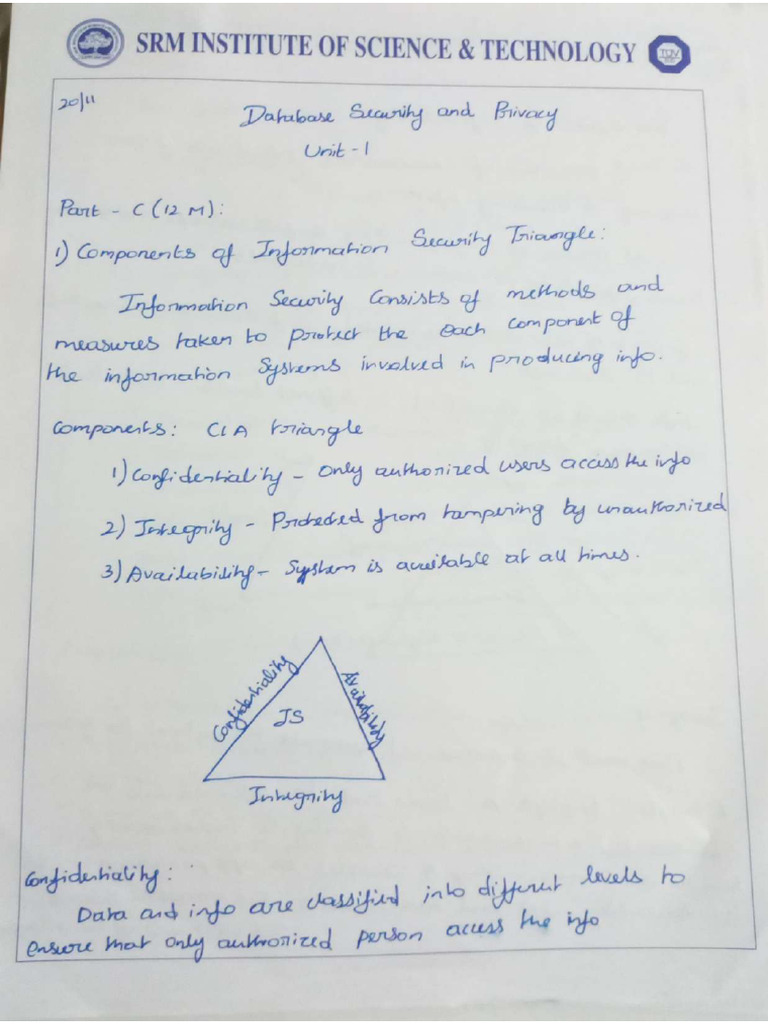 SRM INSTITUTE OF SCIENCE & TECHNOLOGY
20/11
Database Security and Privacy
Unit - 1
Part - C (12 M):
1) Components of Information Security Triangle:
Information Security Consists of methods and
measures taken to protect the each component of
the information Systems involved in producing info.
Components: CIA triangle
1) Confidentiality - Only authorized users access the info
2) Integrity - Protected from tampering by unauthorized
3) Availability - System is available at all times.
Confidentiality
Availability
IS
Integrity
Confidentiality:
Data and info are classified into different levels to
ensure that only authorized person access the info